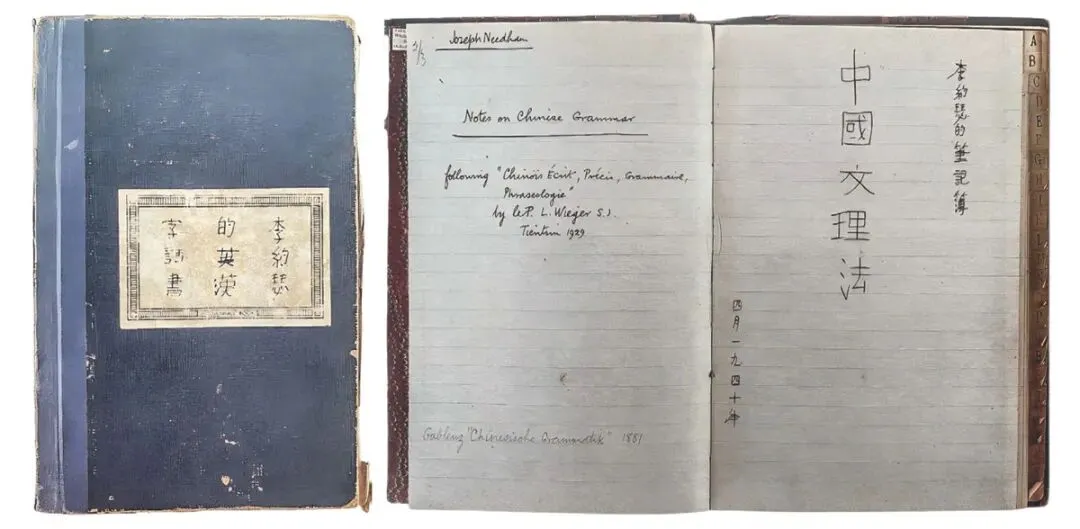 李約瑟
的英漢
字 書
Joseph Needham
Notes on Chinese Grammar
following "Chinois Écrit, Précis, Grammaire,
Phraseologie"
by le P. L. Wieger S.J.
Tientsin 1929
Gablenz "Chinesische Grammatik" 1881
李約瑟的筆記簿
中國文理法
四月一九四十年
A
B
C
D
E
F
G